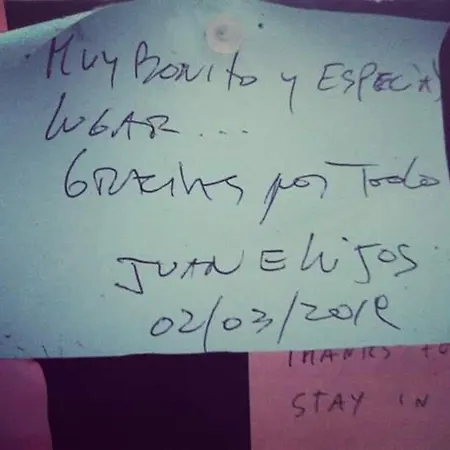 Muy BONITO y ESPECIAL
LUGAR...
GRACIAS por Todo
JUAN E HIJOS
02/03/2012
THANKS TO
STAY IN